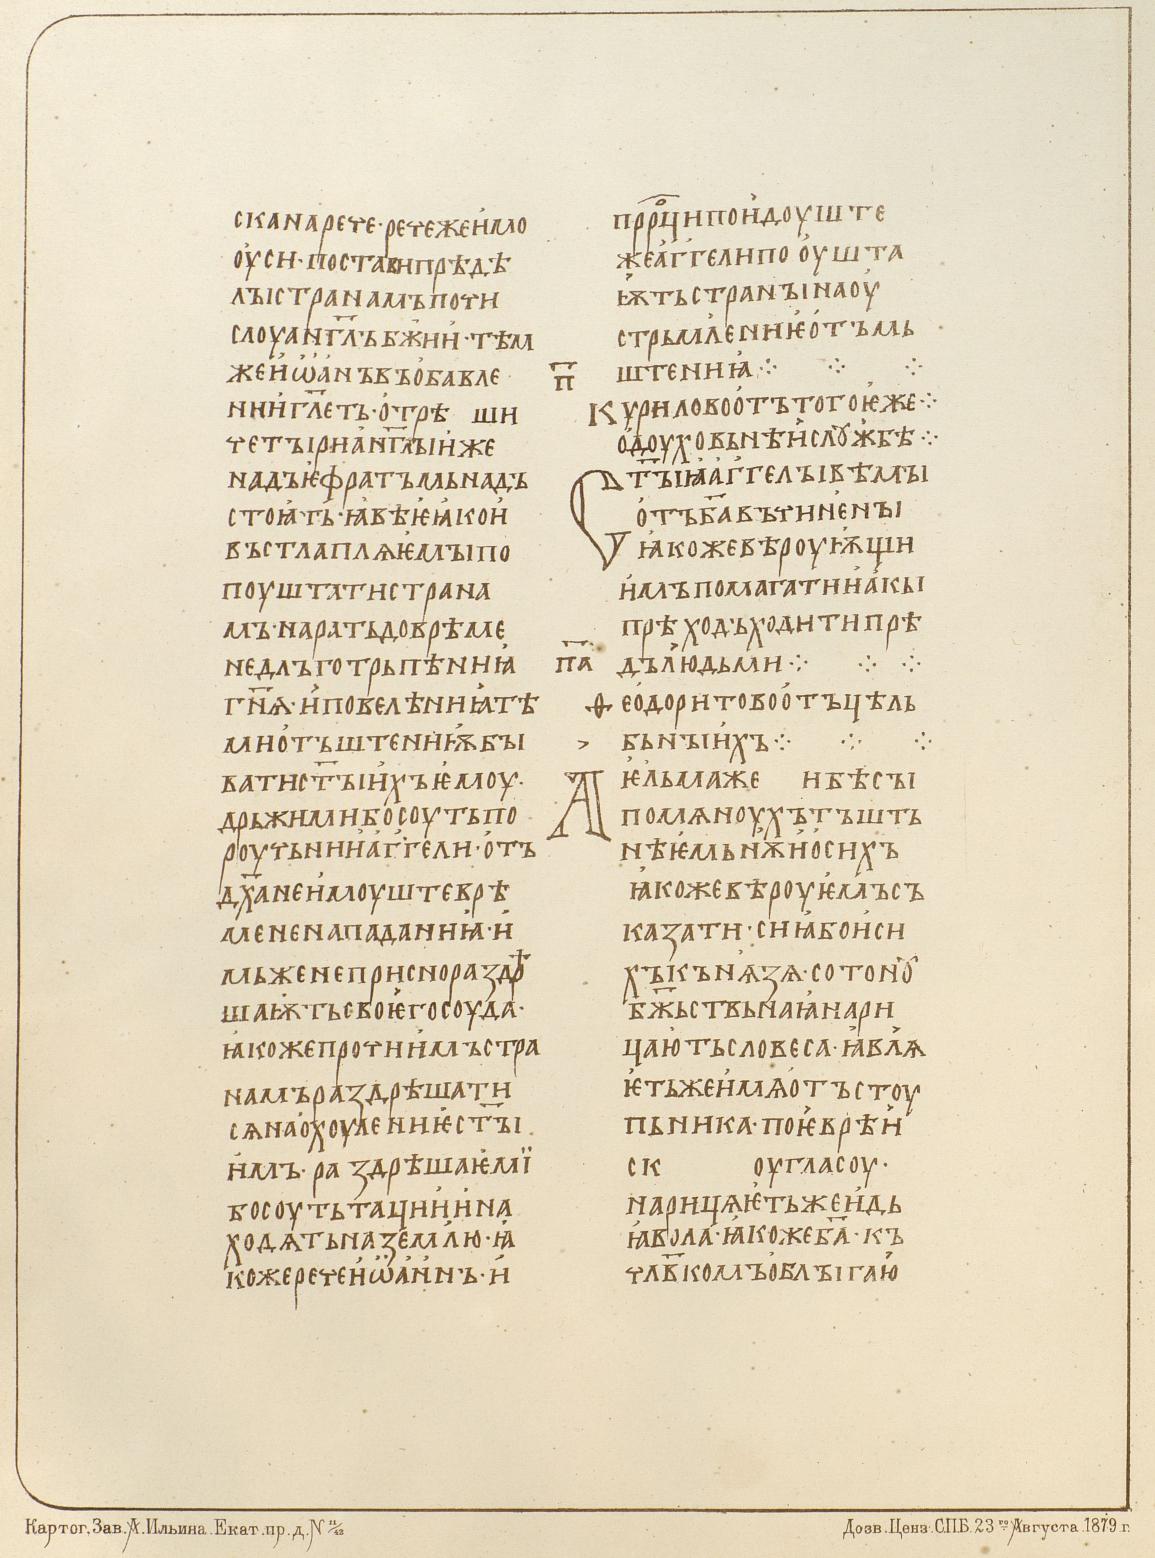 сканарече·речежеимо
оуси·поставипрѣдѣ
лъıстранамъпочи
слоуанг҃лъбжии·тѣм
жеиѡанъвъобавле
нииг҃леть·отрѣ ши
четъıриан҃глъıиже
надъѥфратъмьнадъ
стоꙗть·ꙗвѣѥꙗкои
въстлаплѧѥмъıпо
поуштатистрана
мъ·наратьдоврѣме
недлъготрьпѣниꙗ
г҃нѧ·иповелѣниꙗтѣ
миотъштениѭбъı
ватист҃ъıихъѥмоу·
дрьжимибосоутьпо
роучьнииаггели·отъ
дх҃анеимоуштеврѣ
мененападаниꙗ·и
мьженеприснораздрѣ
шаѭтьсвоѥгосоуда·
ꙗкожепротиимъстра
намъраздрѣшати
сѧнаохоулениѥст҃ъı
имъ·ра здрѣшаѥмї
босоутьтациинина
ходѧтьназемлю·ꙗ
кожеречеиѡаннъ·и
пррци҃поидоуште
жеаггелипо оушта
ѭтьстранъıнаоу
стрьмлениѥотъмь
штениꙗ⁘ ⁘ ⁘
п҃
Курилововотътогоѥже⁘
одоуховьнѣислꙋжбѣ⁘
Ст҃ъıꙗаггелъıвѣмъı
отъб҃авъчиненъı
ꙗкожевѣроуѭщи
имъпомагатиинакы
прѣходъходитипрѣ
п҃а дълюдьми⁘ ⁘ ⁘
Ѳеодоритовоотъцѣль
бьнъıихъ⁘ ⁘ ⁘
Аѥльмаже ибѣсъı
помѧноухътъшть
нѣѥмьнѫиосихъ
ꙗкожевѣроуѥмъсъ
казати·сиꙗбоиси
хъкънѧзѧ·сотонꙋ
б҃жьствьнаꙗнари
цаютьсловеса·ꙗвлѧ
ѥтьжеимѧотъстоу
пьника·поѥврѣи
ск оугласоу·
нарицѧѥтьжеидь
ꙗвола·ꙗкожеб҃а·къ
чл҃вкомъоблъıгаю
Картог. Зав. А. Ильина. Екат. пр. д. N 11/43
Дозв. Ценз. С.П.Б. 23го Августа 1879 г.